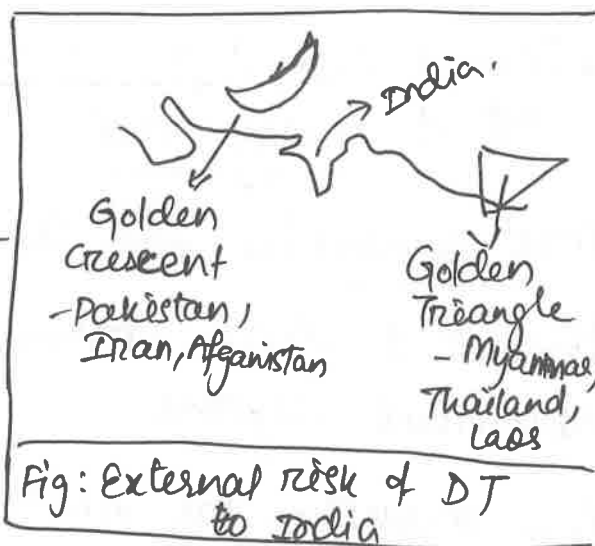 India.
Golden
Crescent
- Pakistan,
Iran, Afganistan
Golden
Triangle
- Myanmar,
Thailand,
Laos
Fig: External risk of DT
to India